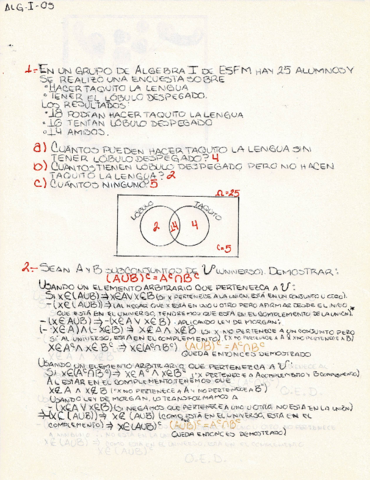 ALG-I-05
1.- EN UN GRUPO DE ALGEBRA I DE ESFM HAY 25 ALUMNOS Y
SE REALIZO UNA ENCUESTA SOBRE
• HACER TAQUITO LA LENGUA
• TENER EL LÓBULO DESPEGADO.
LOS RESULTADOS:
• 18 PODÍAN HACER TAQUITO LA LENGUA
• 16 TENÍAN LÓBULO DESPEGADO
• 14 AMBOS.
a) CUANTOS PUEDEN HACER TAQUITO LA LENGUA SIN
TENER LÓBULO DESPEGADO? 4
b) CUANTOS TIENEN LOBULO DESPEGADO PERO NO HACEN
TAQUITO LA LENGUA? 2
c) CUÁNTOS NINGUNO? 5
Ω=25
LÓBULO TAQUITO
2 14 4
C=5
2.- SEAN A y B SUBCONJUNTOS DE U (UNIVERSO). DEMOSTRAR:
(AUB)ᶜ = Aᶜ∩Bᶜ
USANDO UN ELEMENTO ARBITRARIO QUE PERTENEZCA A U:
SI X∈(AUB) ⇒ X∈A ∨ X∈B (SI X PERTENECE A LA UNION, ESTÁ EN UN CONJUNTO U OTRO).
¬(X∈(AUB))
QUE ESTÁ EN EL UNIVERSO, TENDREMOS QUE ESTÁ EN EL COMPLEMENTO DE LA UNION).
¬(X∈(AUB)) ⇒ ¬(X∈A ∨ X∈B) APLICANDO LEY DE MORGAN:
(¬X∈A) ∧ (¬X∈B) ⇒ X∉A ∧ X∉B (SI X NO PERTENECE A UN CONJUNTO PERO
SÍ AL UNIVERSO, ESTÁ EN EL COMPLEMENTO)
X∈Aᶜ ∧ X∈Bᶜ ⇒ X∈(Aᶜ∩Bᶜ) (AUB)ᶜ = Aᶜ∩Bᶜ
QUEDA ENTONCES DEMOSTRADO
USANDO UN ELEMENTO ARBITRARIO, QUE PERTENERA A U:
SI X∈(Aᶜ∩Bᶜ) ⇒ X∈Aᶜ ∧ X∈Bᶜ
AL ESTAR EN EL COMPLEMENTO TENEMOS QUE
X∉A ∧ X∉B
USANDO LEY DE MORGAN, LO TRANSFORMAMOS A
¬(X∈A ∨ X∈B) (SI NEGAMOS QUE PERTENECE A UNO U OTRO, NO ESTA EN LA UNION)
⇒ ¬(X∈(AUB)) ⇒ X∉(AUB) (COMO ESTÁ EN EL UNIVERSO, ESTA EN EL
COMPLEMENTO) ⇒ X∈(AUB)ᶜ (AUB)ᶜ = Aᶜ∩Bᶜ
QUEDA ENTONCES DEMOSTRADO